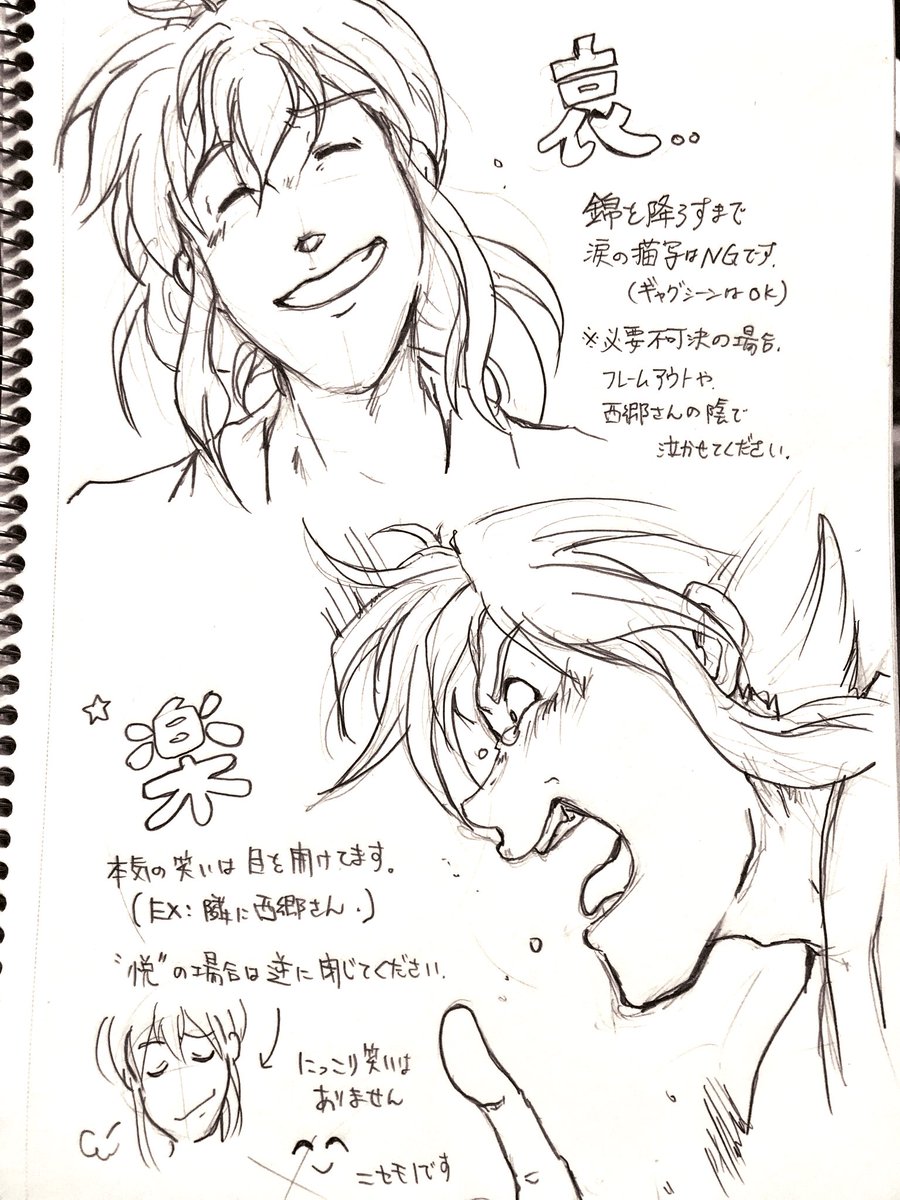 哀..
錦を降ろすまで
涙の描写はNGです.
(ギャグシーンはOK)
※必要不可決の場合.
フレームアウトや.
西郷さんの陰で
泣かせてください.
☆楽
本気の笑いは目を開けてます。
(EX:隣に西郷さん.)
"悦"の場合は逆に閉じてください.
にっこり笑いは
ありません
ニセモノです